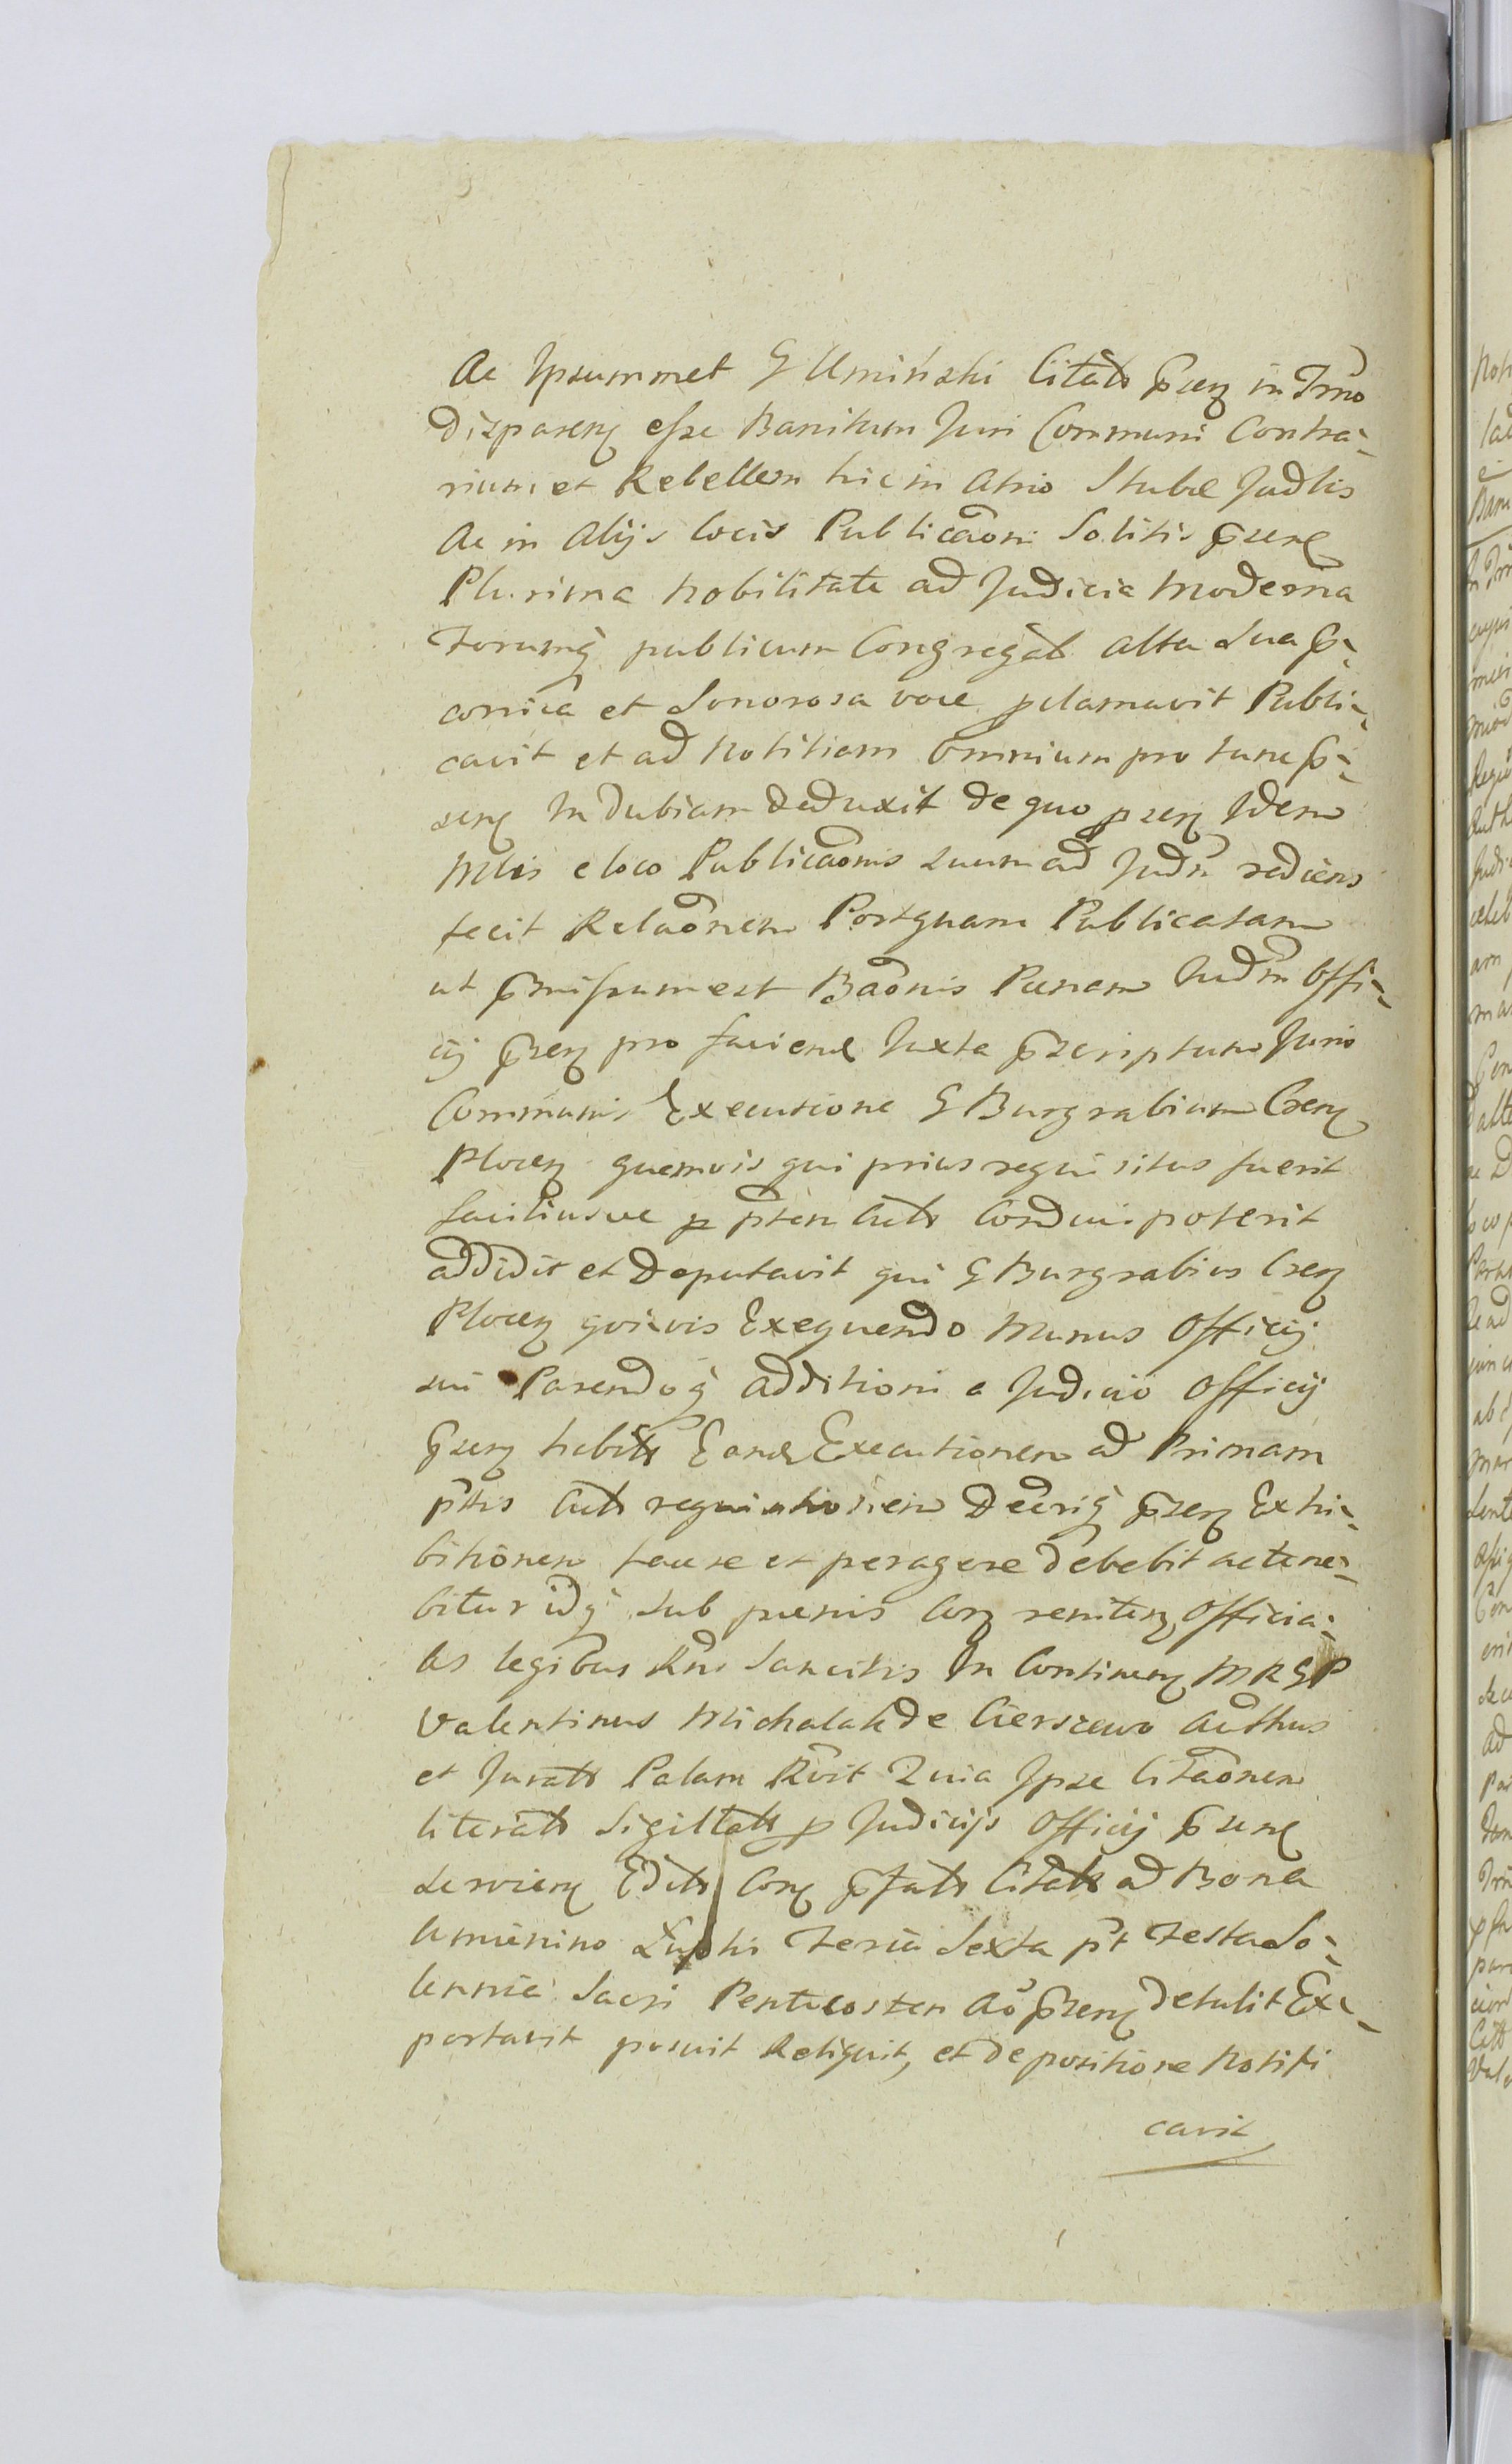 Ac Ipsummet G Uminski Citatō p̄senꝫ in Trn̄o
disparenꝫ esse Banitum Juri Communi Contra-
rium et Rebellem hic in Atrio Stubæ Judlis
Ac in Alijs locis Publicaōni Solitis p̄senꝫ
Plurima Nobilitate ad Judicia Moderna
Forumq̄ publicum Congregat Alta Sua p̄-
conica et Sonorosa voce pclamavit Publi-
cavit et ad Notitiam Omnium pro tunc p̄-
senꝫ Indubiam Deduxit de quo p̄senꝫ Idem
Mlis e loco Publicaōnis suum ad Judm̄ rediens
fecit Relaōnem Postquam Publicatam
ut p̄missum est Baōnis Pænam Judm̄ Offi-
cij p̄senꝫ pro faciend Juxta p̄scriptum Juris
Communis Executione G Burgrabium Csenꝫ
Plocenꝫ quemvis qui prius requisitus fuerit
faciliusve p p̄tem Acto Conduci poterit
addidit et Deputavit qui G Burgrabius Csenꝫ
Plocenꝫ quivis Exequendo Munus Officij
sui Parendoq̄ additioni a Judicio Officij
p̄senꝫ habitō Eand Executionem ad Primam
p̄tis Acto requisitionem Decriq̄ p̄senꝫ Exhi-
bitionem facere et peragere debebit ac tene-
bitur idq̄ sub pænis Conꝫ renitenꝫ Officia-
les legibus Rn̄i Sancitis In Continenꝫ MRGP
Valentinus Michalak de Cierszewo Authus
et Juratō Palam Rv̄it Quia Ipse Citaōnem
literatō Sigillatō p Judicijs Officij p̄senꝫ
Servienꝫ Editō Conꝫ p̄fatō Citatō ad Bona
Umienino Łubki Feria Sexta p̄t Festa So-
lennia Sacri Pentecosten Aō p̄senꝫ detulit Ex-
portavit posuit Reliquit, et de positione Notifi
cavit